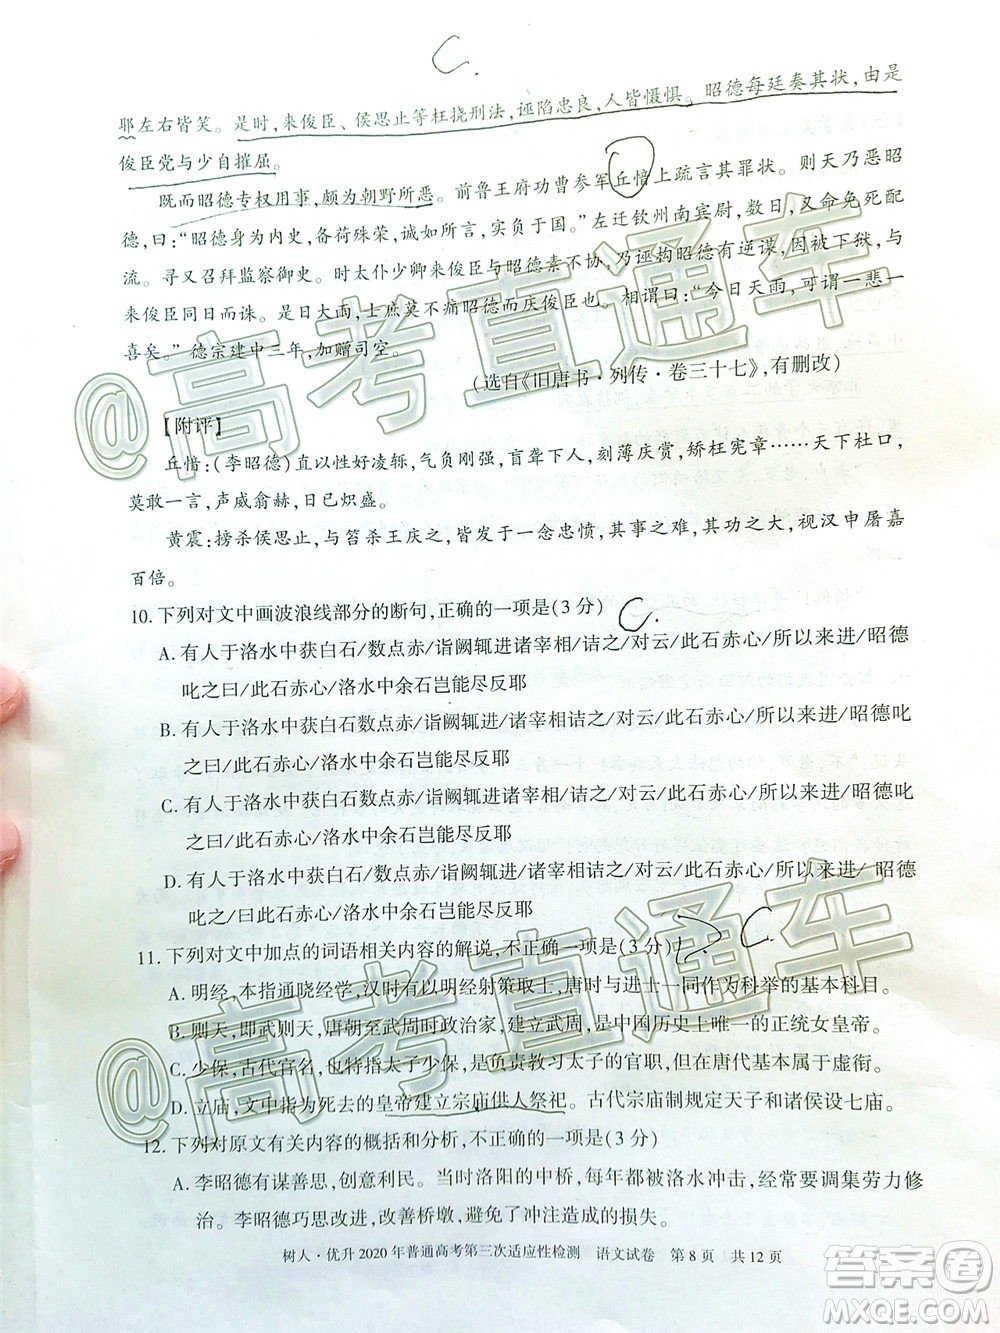 C.
耶左右皆笑。是时,来俊臣、侯思止等枉挠刑法,诬陷忠良,人皆慑惧。昭德每廷奏其状,由是
俊臣党与少自摧屈。
既而昭德专权用事,颇为朝野所恶。前鲁王府功曹参军丘愔上疏言其罪状。则天乃恶昭
德,曰:“昭德身为内史,备荷殊荣,诚如所言,实负于国。”左迁钦州南宾尉,数日,又命免死配
流。寻又召拜监察御史。时太仆少卿来俊臣与昭德素不协,乃诬构昭德有逆谋,因被下狱,与
来俊臣同日而诛。是日大雨,士庶莫不痛昭德而庆俊臣也。相谓曰:“今日天雨,可谓一悲一
喜矣。”德宗建中三年,加赠司空。
(选自《旧唐书·列传·卷三十七》,有删改)
【附评】
丘愔:(李昭德)直以性好凌轹,气负刚强,盲聋下人,刍狗同列,刻薄庆赏,矫枉宪章……天下杜口,
莫敢一言,声威翕赫,日已炽盛。
黄震:搒杀侯思止,与笞杀王庆之,皆发于一念忠愤,其事之难,其功之大,视汉申屠嘉
百倍。
10. 下列对文中画波浪线部分的断句,正确的一项是(3 分) C.
A. 有人于洛水中获白石/数点赤/诣阙辄进诸宰相/诘之/对云/此石赤心/所以来进/昭德
叱之曰/此石赤心/洛水中余石岂能尽反耶
B. 有人于洛水中获白石数点赤/诣阙辄进/诸宰相诘之/对云/此石赤心/所以来进/昭德叱
之曰/此石赤心/洛水中余石岂能尽反耶
C. 有人于洛水中获白石数点赤/诣阙辄进诸宰相诘之/对云/此石赤心/所以来进/昭德叱
之曰/此石赤心/洛水中余石岂能尽反耶
D. 有人于洛水中获白石/数点赤/诣阙辄进/诸宰相诘之/对云/此石赤心/所以来进/昭德
叱之/曰/此石赤心/洛水中余石岂能尽反耶
11. 下列对文中加点的词语相关内容的解说,不正确一项是(3 分) C.
A. 明经,本指通晓经学,汉时以明经射策取士,唐时与进士一同作为科举的基本科目。
B. 则天,即武则天,唐朝至武周时政治家,建立武周,是中国历史上唯一的正统女皇帝。
C. 少保,古代官名,也特指太子少保,是负责教习太子的官职,但在唐代基本属于虚衔。
D. 立庙,文中指为死去的皇帝建立宗庙供人祭祀。古代宗庙制规定天子和诸侯设七庙。
12. 下列对原文有关内容的概括和分析,不正确的一项是(3 分)
A. 李昭德有谋善思,创意利民。当时洛阳的中桥,每年都被洛水冲击,经常要调集劳力修
治。李昭德巧思改进,改善桥墩,避免了冲注造成的损失。
树人·优升 2020 年普通高考第三次适应性检测 语文试卷 第 8 页 共 12 页
@高考直通车
@高考直通车
答案圈
MXQE.COM